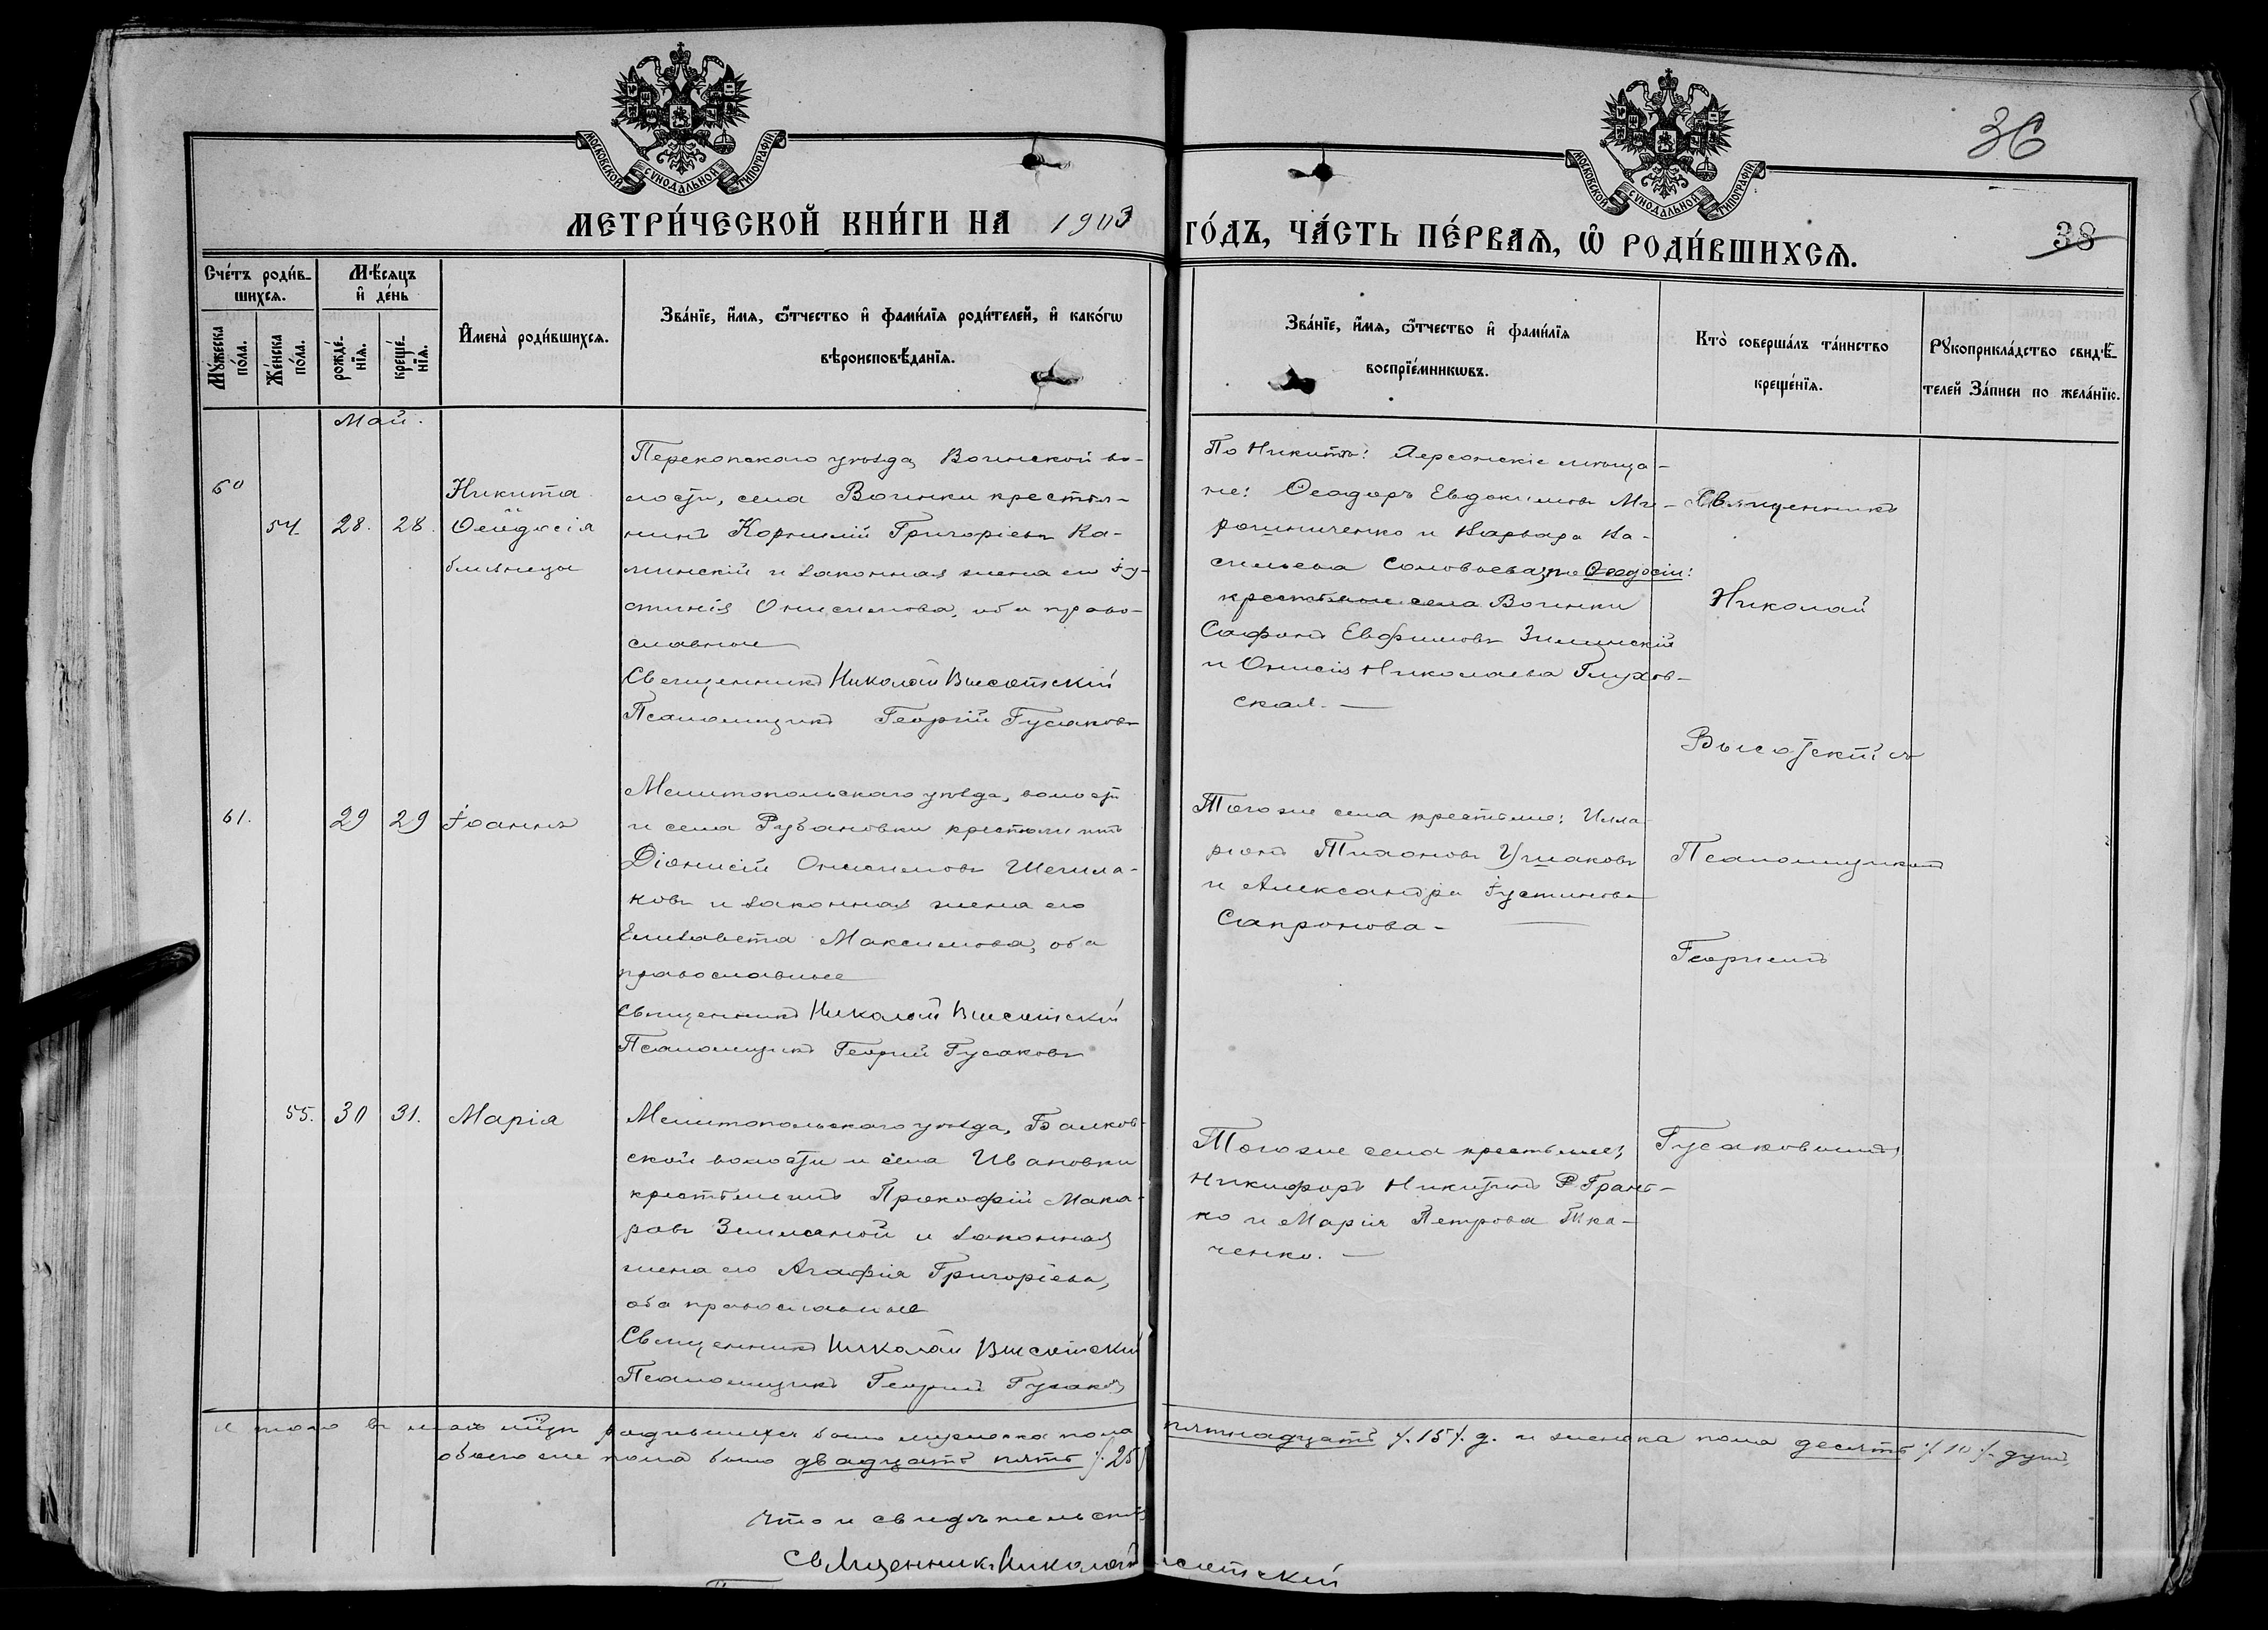 МОСКОВСКОЙ СѴНОДАЛЬНОЙ ТИПОГРАФІИ
МОСКОВСКОЙ СѴНОДАЛЬНОЙ ТИПОГРАФІИ
36
38
МЕТРИ́ЧЕСКОЙ КНИ́ГИ НА 1903 ГО́ДЪ, ЧА́СТЬ ПЕ́РВАѦ, Ѡ҆ РОДИ́ВШИХСѦ.
Сче́тъ роди́в-
шихсѧ.
Мꙋ́жеска
по́ла.
Же́нска
по́ла.
Мѣ́сѧцъ
и҆ де́нь
рожде́-
нїѧ.
креще́-
нїѧ.
И҆мена̀ роди́вшихсѧ.
Зва́нїе, и҆́мѧ, ѻ҆́тчество и҆ фами́лїѧ роди́телей, и҆ како́гѡ
вѣроисповѣ́данїѧ.
Зва́нїе, и҆́мѧ, ѻ҆́тчество и҆ фами́лїѧ
воспрїе́мникѡвъ.
Кто̀ соверша́лъ та́инство
креще́нїѧ.
Рꙋкоприкла́дство свидѣ́-
телей За́писи по жела́нїю.
Май.
60
54
28.
28.
Никита
Ѳеодосія
близнецы
Перекопскаго уѣзда, Воинской во-
лости, села Воинки крестья-
нинъ Корнилій Григоріевъ Ка-
минскій и законная жена его Іу-
стинія Онисимова, оба право-
славные
Священникъ Николай Высотскій
Псаломщикъ Георгій Гусаковъ
По Никитѣ: Херсонскіе мѣща-
не: Ѳеодоръ Евдокимовъ Ми-
рошниченко и Варвара Ва-
сильева Соловьева; по Ѳеодосіи:
крестьяне села Воинки
Сафонъ Евфимовъ Зилинскій
и Онисія Николаева Глухов-
ская.
Священникъ
Николай
Высотскій съ
Псаломщикомъ
Георгіемъ
Гусаковымъ
61.
29
29
Іоаннъ
Мелитопольскаго уѣзда, волости
и села Рубановки крестьянинъ
Діонисій Онисимовъ Шегила-
ковъ и законная жена его
Елизавета Максимова, оба
православные
Священникъ Николай Высотскій
Псаломщикъ Георгій Гусаковъ
Того же села крестьяне: Илла-
ріонъ Тихоновъ Ушаковъ
и Александра Іустинова
Сапронова
55.
30
31.
Марія
Мелитопольскаго уѣзда, Балков-
ской волости и села Ивановки
крестьянинъ Прокофій Мака-
ровъ Земляной и законная
жена его Агафія Григоріева,
оба православные
Священникъ Николай Высотскій
Псаломщикъ Георгій Гусаковъ
Того же села крестьяне:
Никифоръ Никитинъ Грань-
ко и Марія Петрова Тка-
ченко.
Итого въ маѣ м-цѣ родившихся было мужеска пола пятнадцать /.15/. д. и женска пола десять /.10/. душъ,
обоего же пола было двадцать пять /.25/.
Что и свидѣтельствуютъ
Священникъ Николай Высотскій